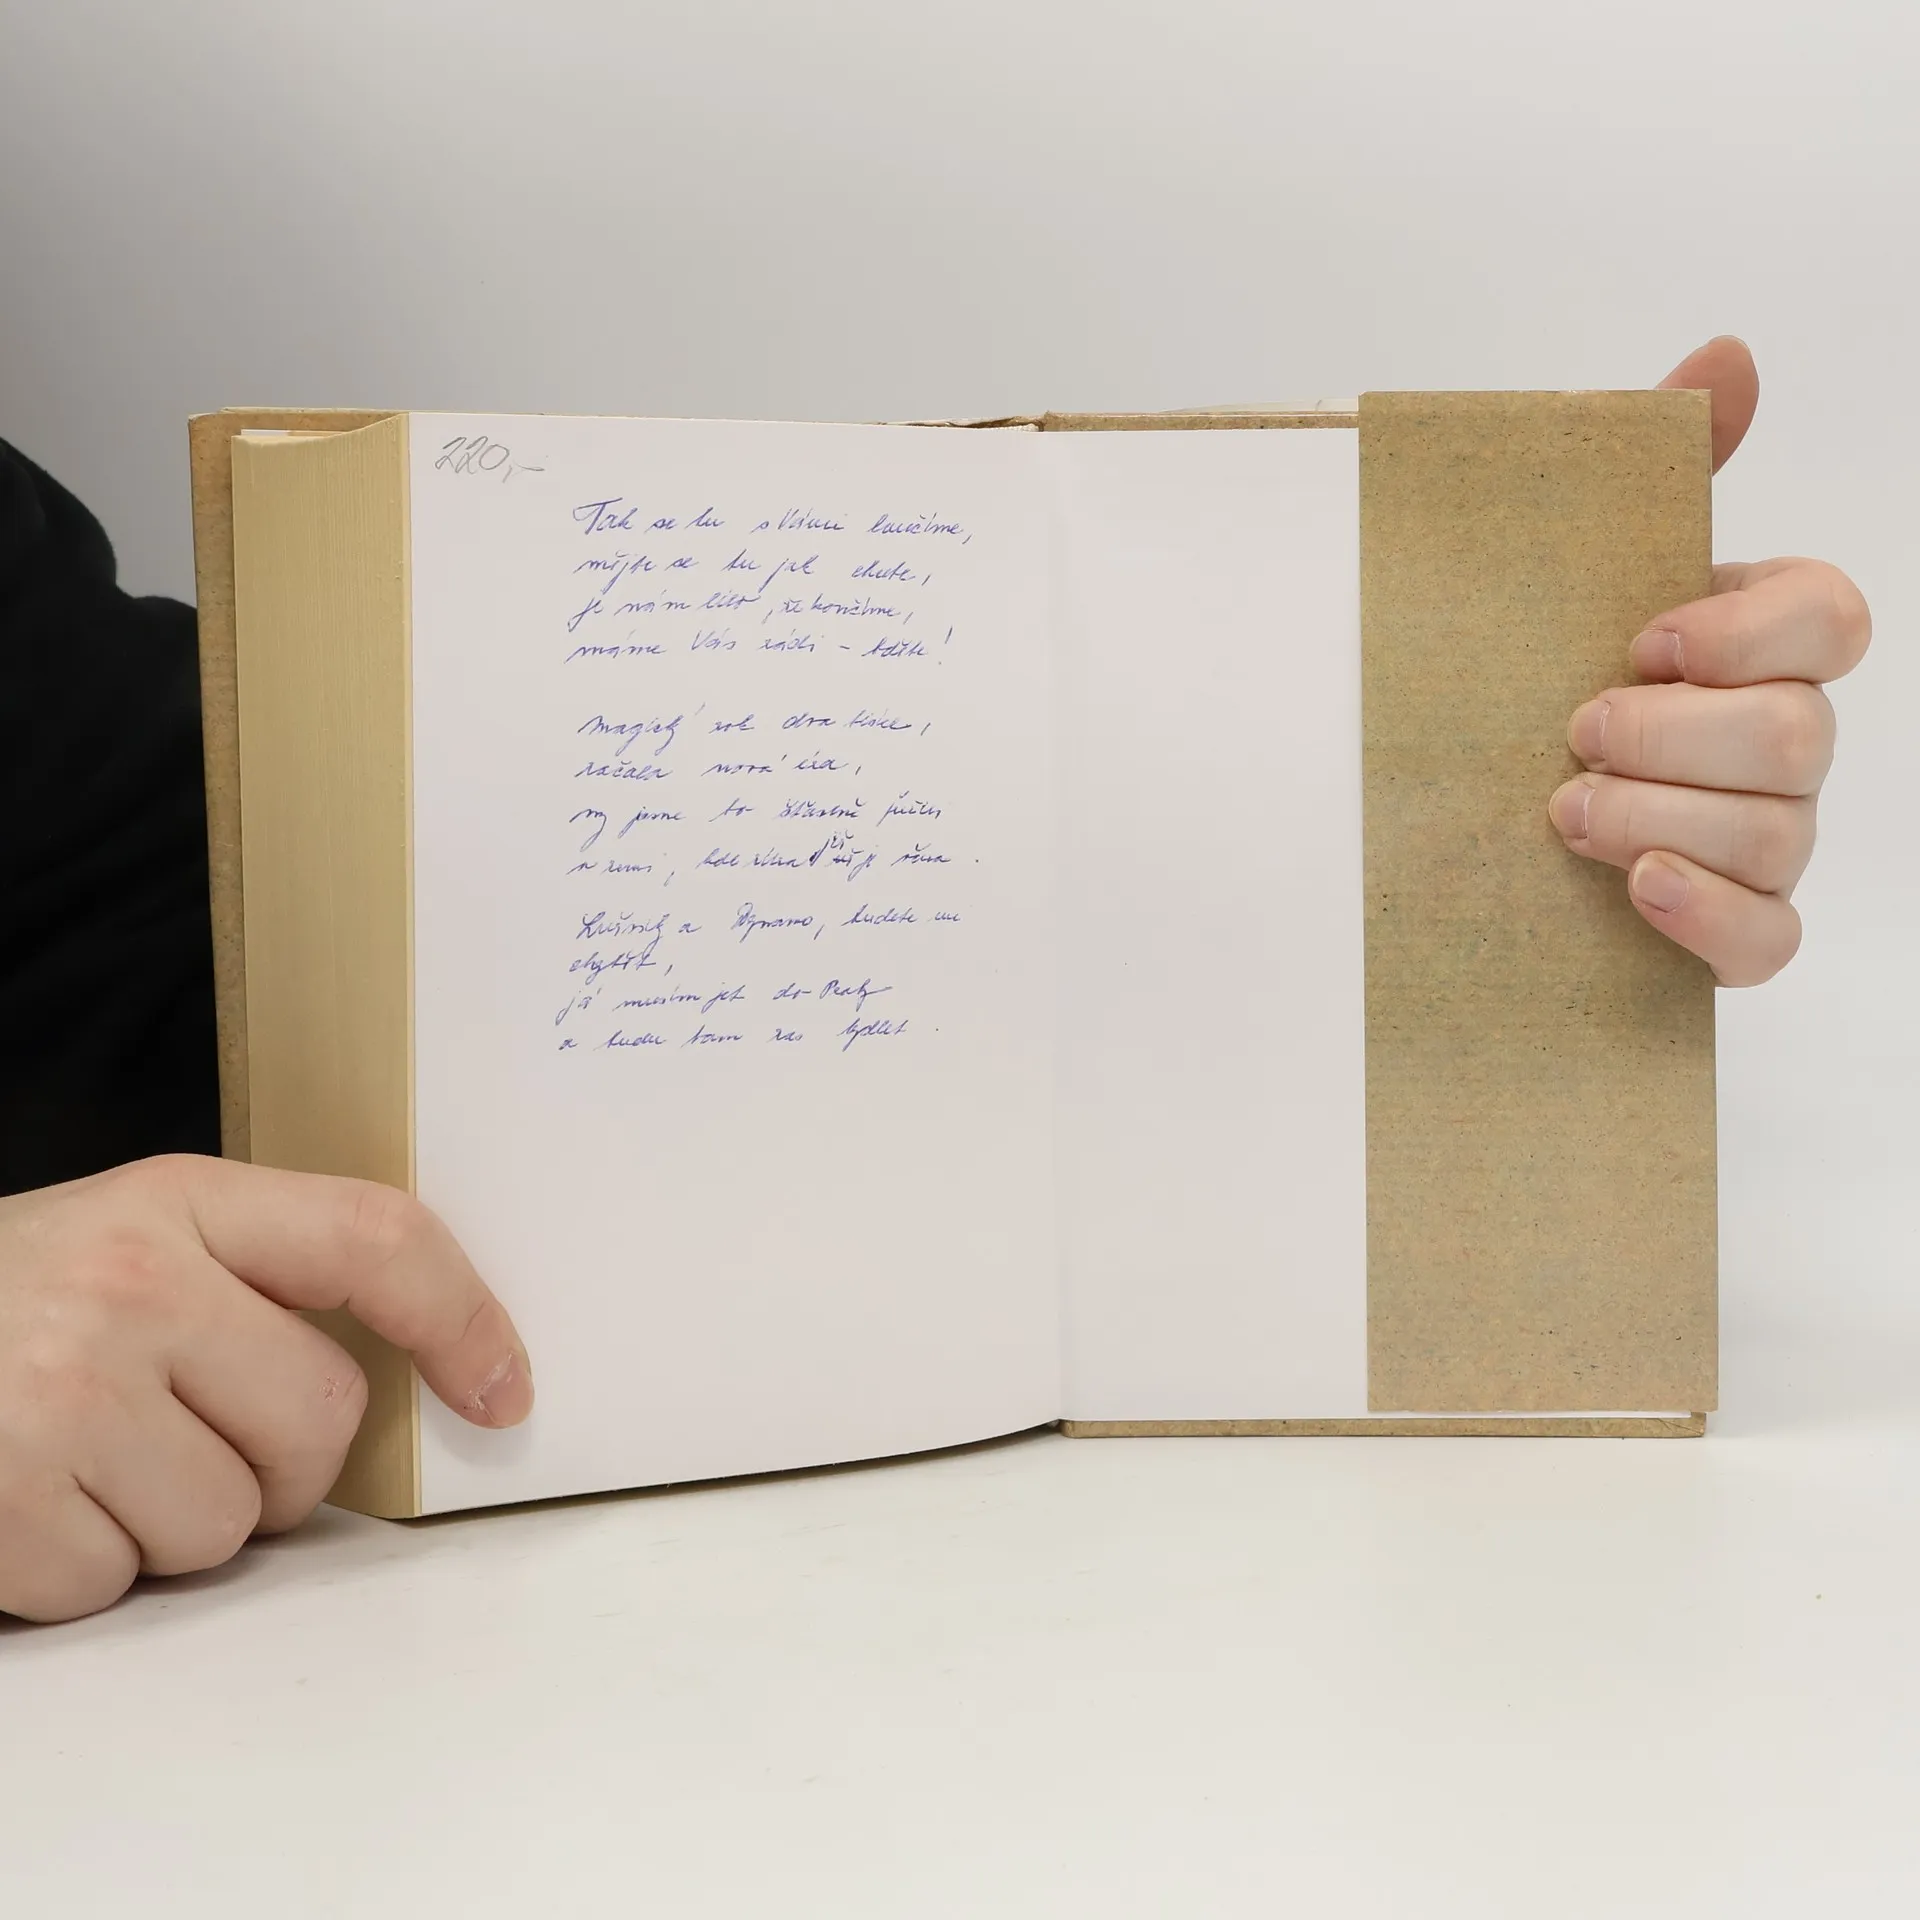 220,-
Tak se tu s Vámi loučíme,
mějte se tu jak chcete,
je nám líto, že končíme,
máme Vás rádi - bděte!
Magický rok dva tisíce,
začala nová éra,
my jsme to šťastně přežili
v zemi, kde zítra již je včera.
Lužníky a Dynamo, budete mi
chybět,
já musím jet do Prahy
a budu tam zas bydlet.